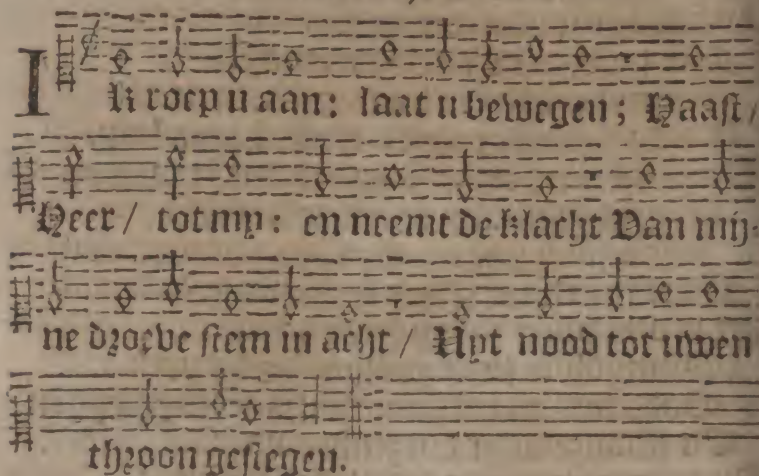 Ik roep u aan: laat u bewegen; Haast /
Heer / tot my: en neemt de klacht Van mij-
ne droeve stem in acht / Uyt nood tot uwen
throon gestegen.